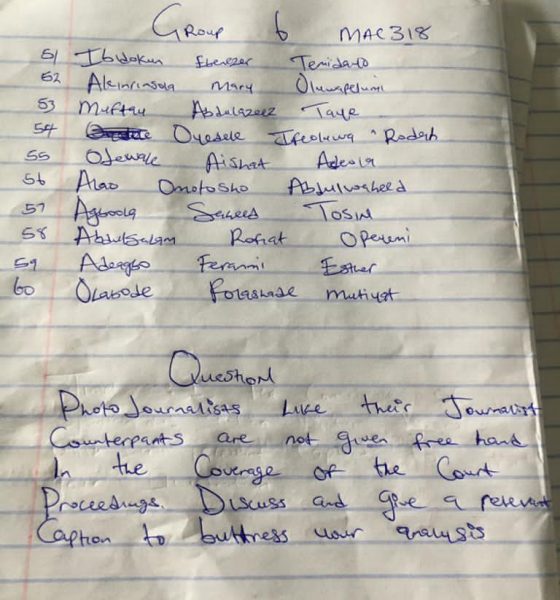 Group 6 MAC318
51 Ibidokun Ebenezer Temidayo
52 Akinrinsola Mary Oluwapelumi
53 Muftau Abdulazeez Taye
54 Oyedele Ifeoluwa Rodah
55 Odewale Aishat Adeola
56 Alao Omotosho Abdulwasheed
57 Agboola Saheed Tosin
58 Abdulsalam Rofiat Opeyemi
59 Adeagbo Feranmi Esther
60 Olabode Folashade Mutiyat
Question
Photo Journalists Like their Journalist
Counterparts are not given free hand
In the Coverage of the Court
Proceedings. Discuss and give a relevant
Caption to buttress your analysis